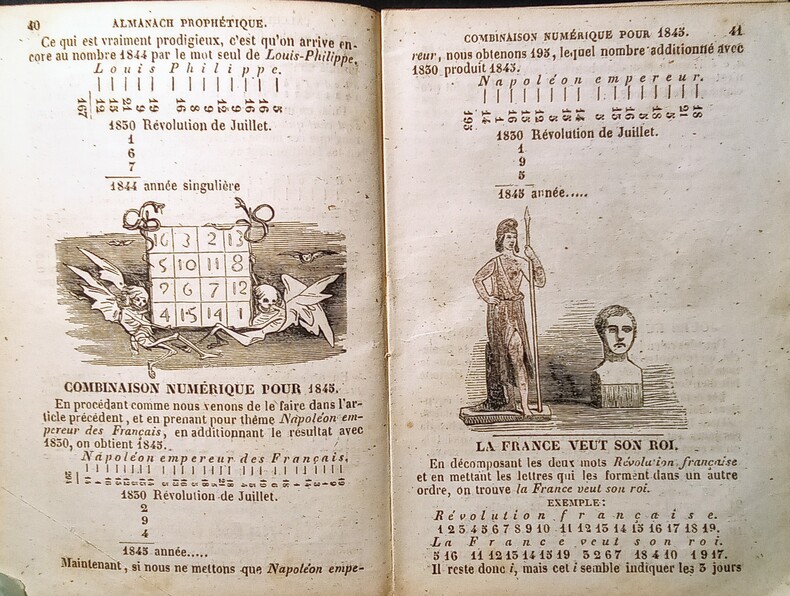 40 ALMANACH PROPHÉTIQUE.
Ce qui est vraiment prodigieux, c'est qu'on arrive en-
core au nombre 1844 par le mot seul de Louis-Philippe.
Louis Philippe.
167 12 15 21 9 19 16 8 9 12 9 16 16 5
1830 Révolution de Juillet.
1
6
7
1844 année singulière
16 3 2 13
5 10 11 8
9 6 7 12
4 15 14 1
COMBINAISON NUMÉRIQUE POUR 1845.
En procédant comme nous venons de le faire dans l'ar-
ticle précédent, et en prenant pour thême Napoléon em-
pereur des Français, en additionnant le résultat avec
1830, on obtient 1845.
Napoléon empereur des Français.
1830 Révolution de Juillet.
2
9
4
1845 année.....
Maintenant, si nous ne mettons que Napoléon empe-
COMBINAISON NUMÉRIQUE POUR 1845. 41
reur, nous obtenons 195, lequel nombre additionné avec
1830 produit 1845.
Napoléon empereur.
195 14 1 16 15 12 5 15 14 5 15 16 5 18 5 21 18
1830 Révolution de Juillet.
1
9
5
1845 année.....
LA FRANCE VEUT SON ROI.
En décomposant les deux mots Révolution française
et en mettant les lettres qui les forment dans un autre
ordre, on trouve la France veut son roi.
EXEMPLE:
Révolution française.
1 2 3 4 5 6 7 8 9 10 11 12 13 14 15 16 17 18 19.
La France veut son roi.
5 16 11 12 13 14 15 19 3 2 6 7 18 4 10 1 9 17.
Il reste donc i, mais cet i semble indiquer les 3 jours